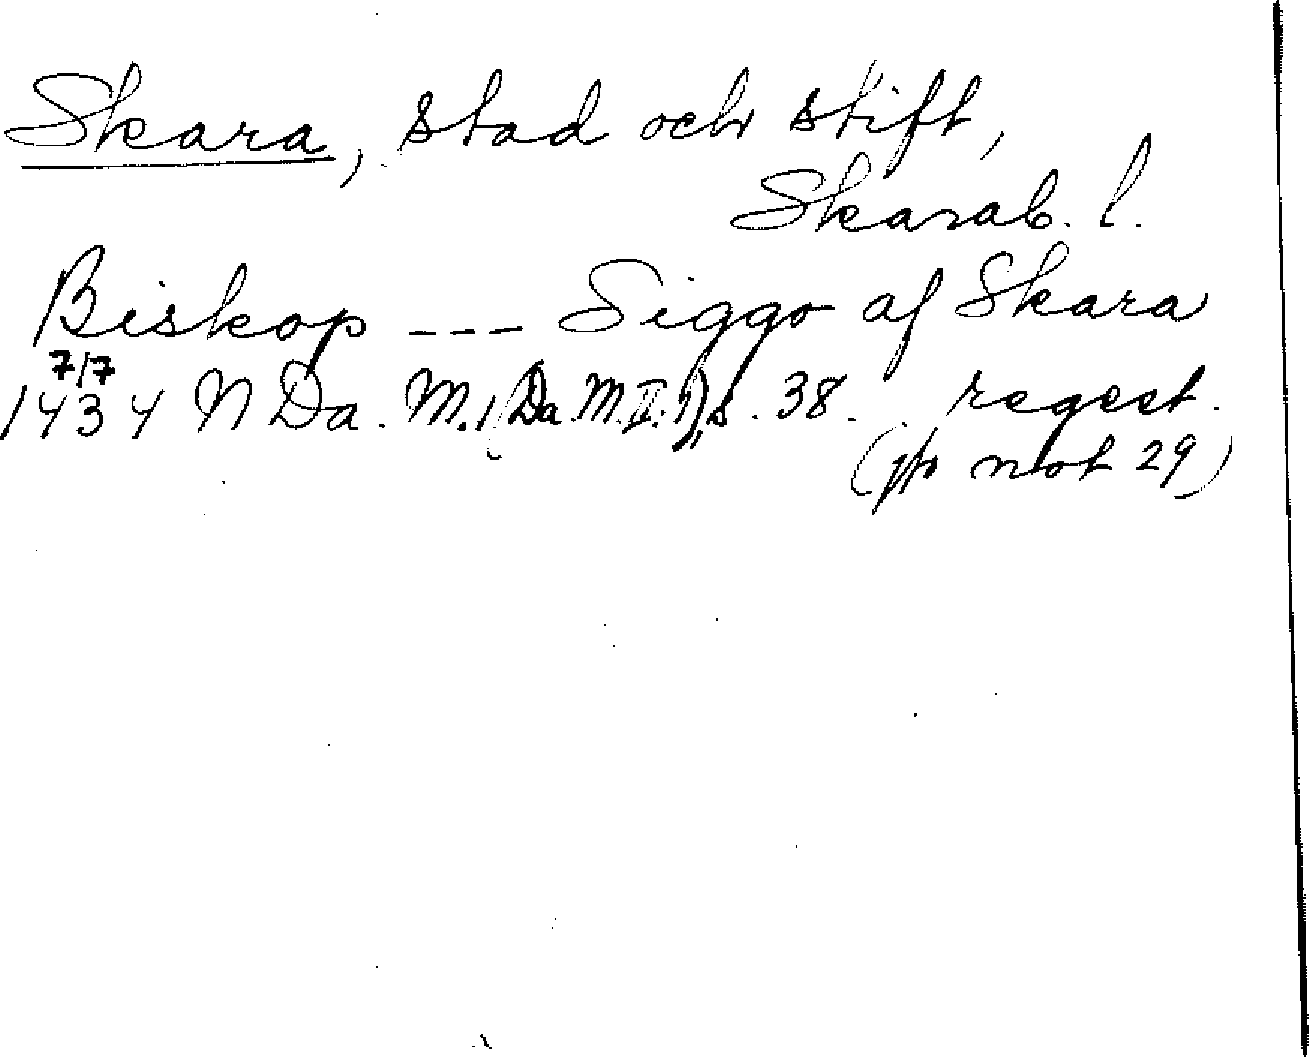 Skara, stad och stift,
Skarab. l.
Biskop --- Siggo af Skara
7/7
1434 N Da. M. 1 (Da. M. II. 1), s. 38. regest.
(jfr not 29)